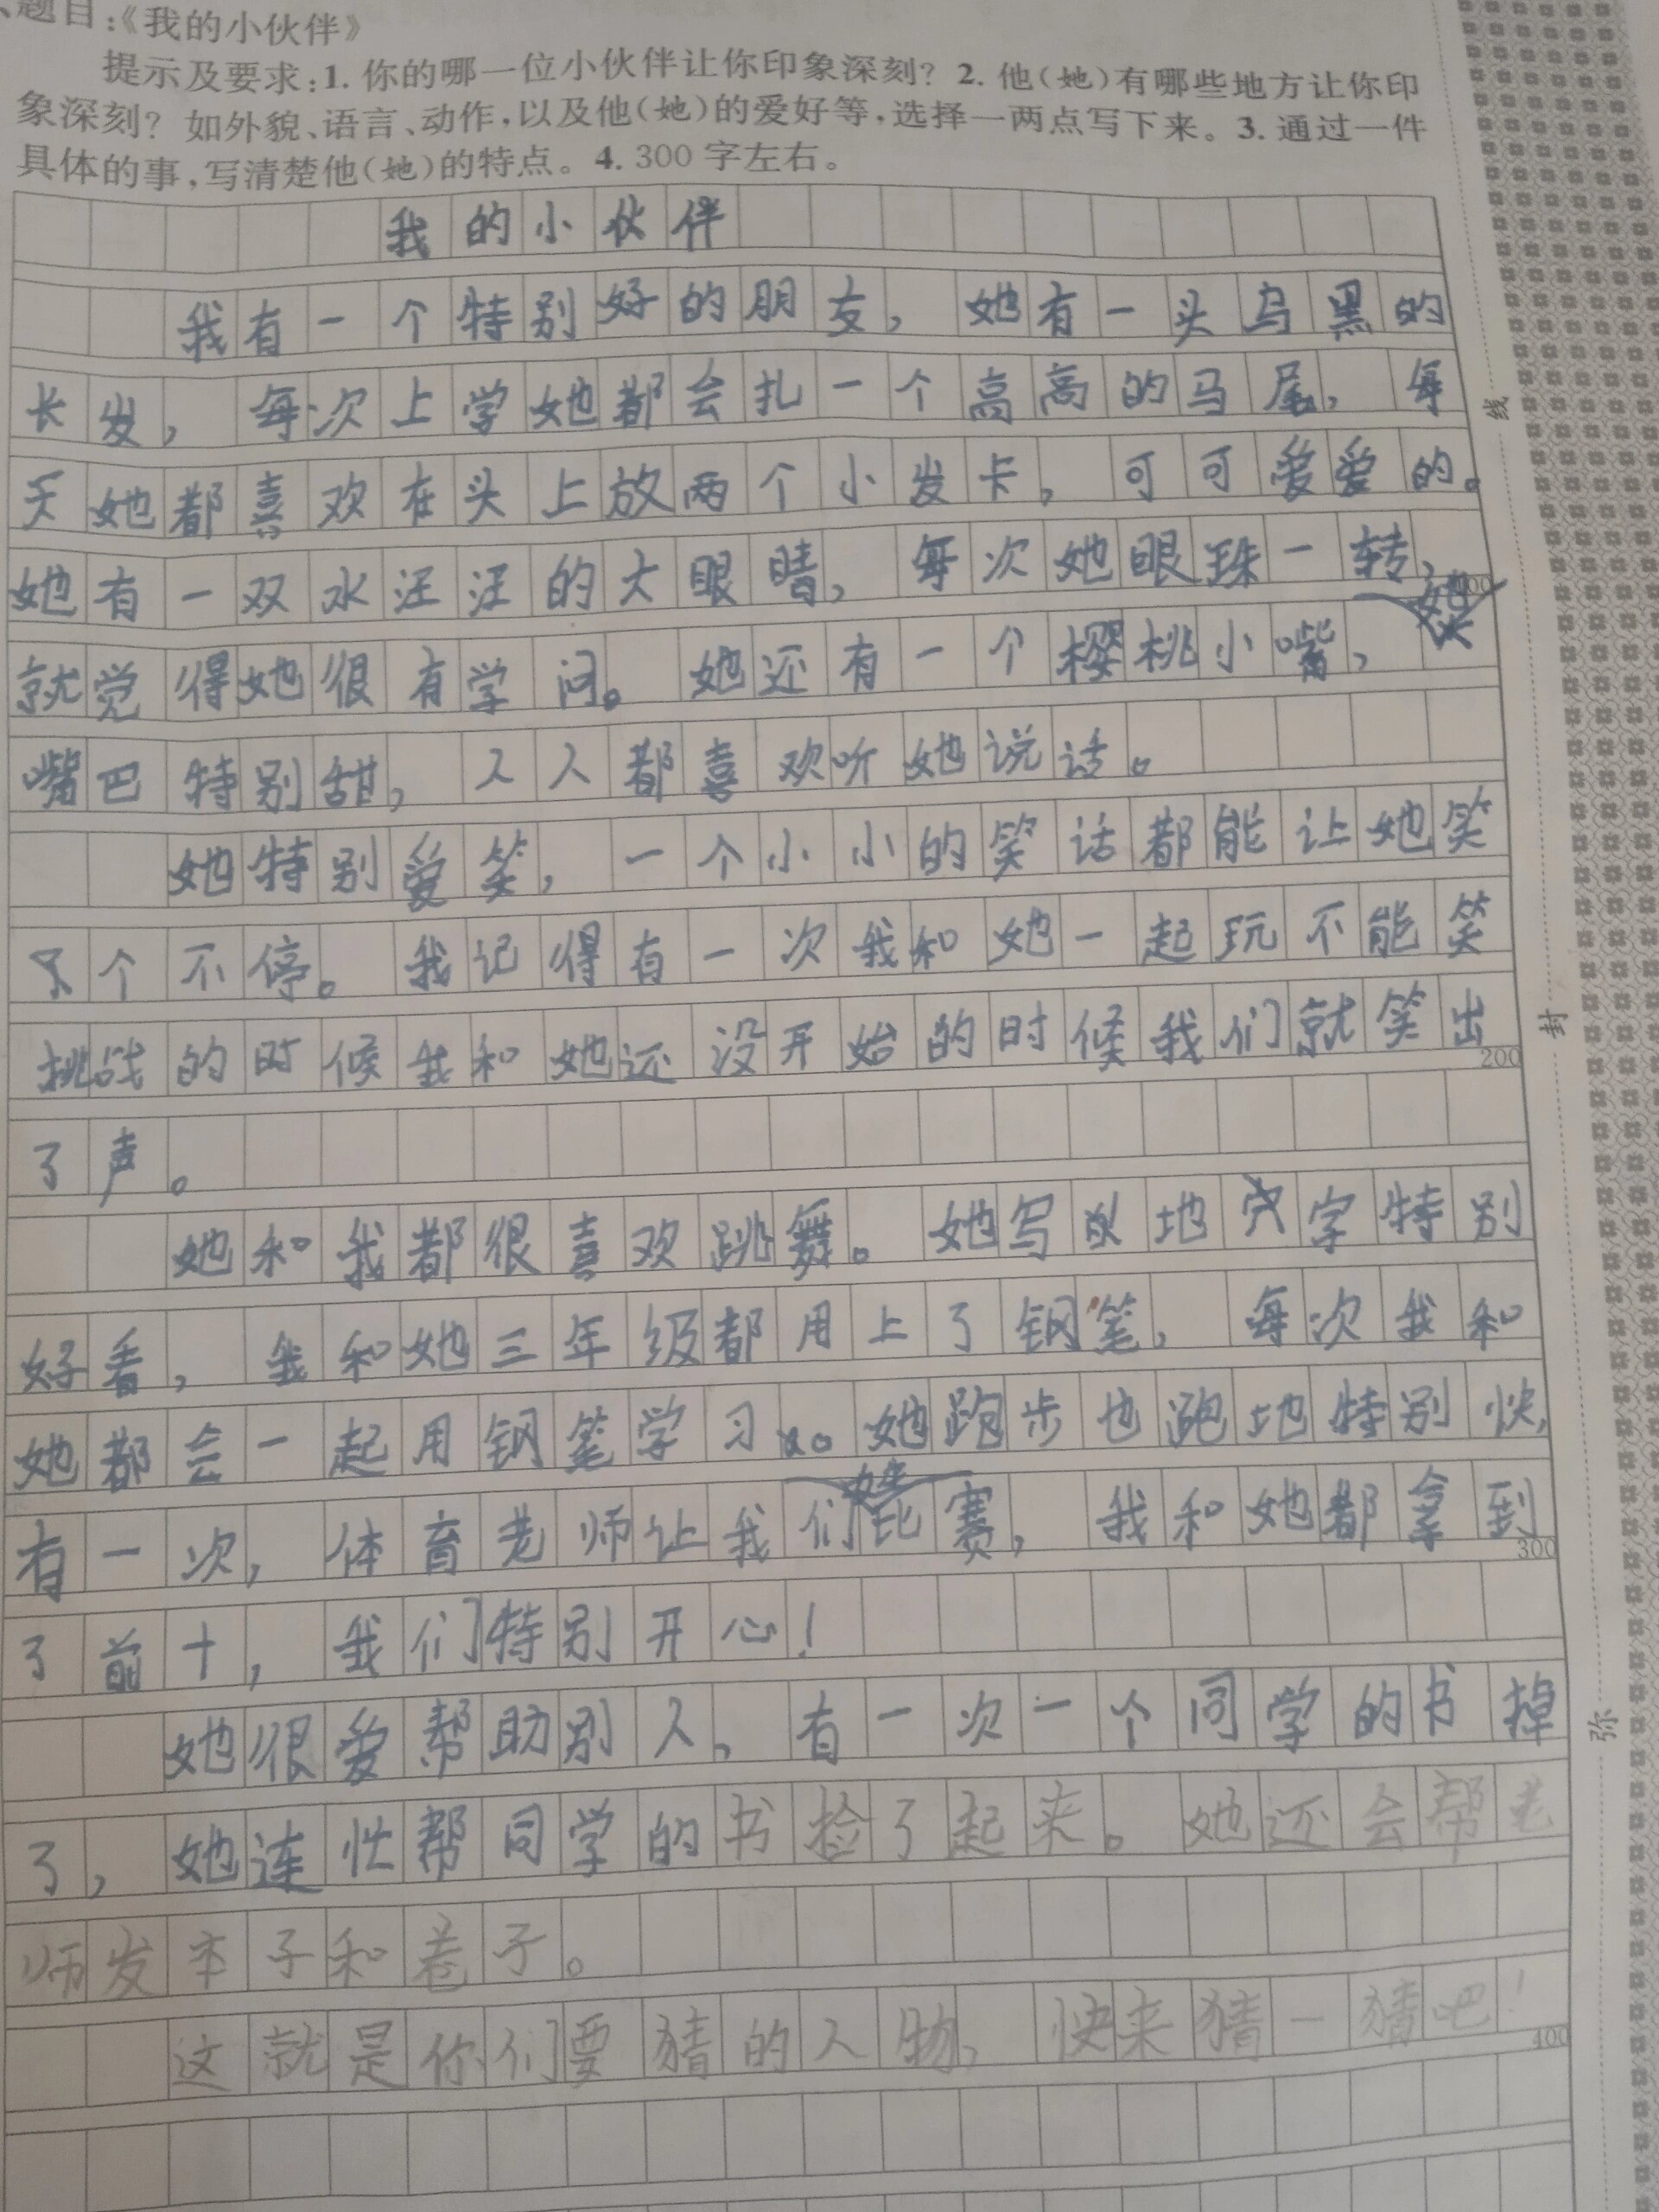 题目:《我的小伙伴》
提示及要求:1. 你的哪一位小伙伴让你印象深刻? 2. 他(她)有哪些地方让你印
象深刻? 如外貌、语言、动作,以及他(她)的爱好等,选择一两点写下来。3. 通过一件
具体的事,写清楚他(她)的特点。4. 300 字左右。
我的小伙伴
我有一个特别好的朋友，她有一头乌黑的
长发，每次上学她都会扎一个高高的马尾，每
天她都喜欢在头上放两个小发卡，可可爱爱的。
她有一双水汪汪的大眼睛，每次她眼珠一转，
100
就觉得她很有学问。她还有一个樱桃小嘴，她
嘴巴特别甜，人人都喜欢听她说话。
她特别爱笑，一个小小的笑话都能让她笑
个不停。我记得有一次我和她一起玩不能笑
挑战的时候我和她还没开始的时候我们就笑出
200
了声。
她和我都很喜欢跳舞。她写地字特别
好看，我和她三年级都用上了钢笔，每次我和
她都会一起用钢笔学习。她跑步也跑地特别快，
有一次，体育老师让我们比赛，我和她都拿到
300
了前十，我们特别开心！
她很爱帮助别人。有一次一个同学的书掉
了，她连忙帮同学的书捡了起来。她还会帮老
师发本子和卷子。
这就是你们要猜的人物，快来猜一猜吧！
400
线
封
弥